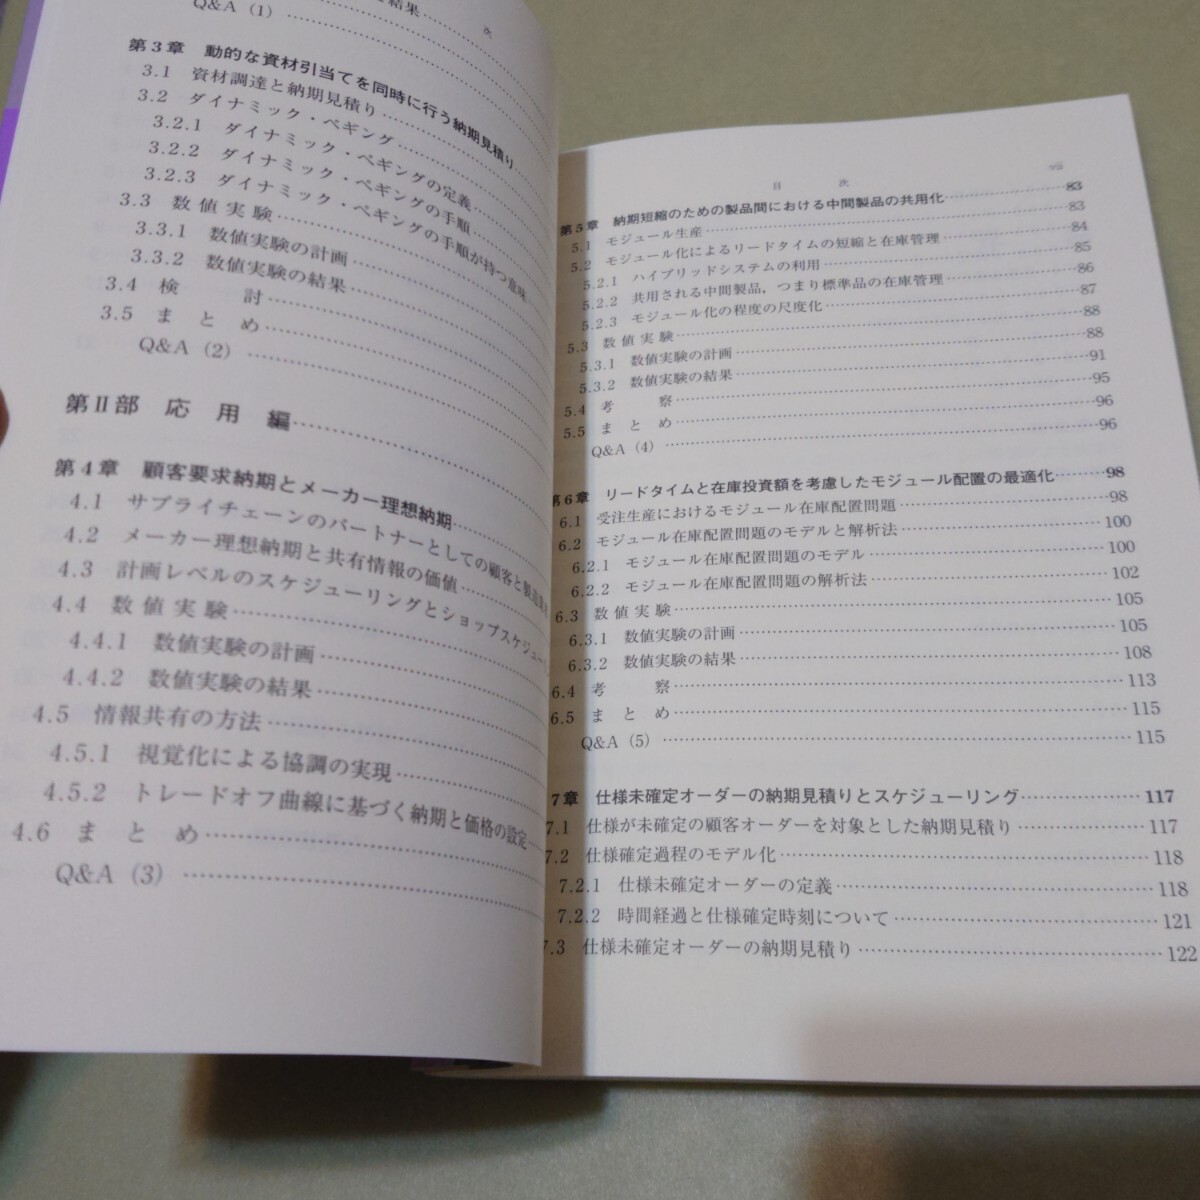 結果
Q&A（1）
次
第3章 動的な資材引当てを同時に行う納期見積り
3.1 資材調達と納期見積り
3.2 ダイナミック・ペギング
3.2.1 ダイナミック・ペギングの定義
3.2.2 ダイナミック・ペギングの手順
3.2.3 ダイナミック・ペギングの手順が持つ意味
3.3 数値実験
3.3.1 数値実験の計画
3.3.2 数値実験の結果
3.4 検 討
3.5 ま と め
Q&A（2）
第II部 応 用 編
第4章 顧客要求納期とメーカー理想納期
4.1 サプライチェーンのパートナーとしての顧客と製造業
4.2 メーカー理想納期と共有情報の価値
4.3 計画レベルのスケジューリングとショップスケジュー
4.4 数値実験
4.4.1 数値実験の計画
4.4.2 数値実験の結果
4.5 情報共有の方法
4.5.1 視覚化による協調の実現
4.5.2 トレードオフ曲線に基づく納期と価格の設定
4.6 ま と め
Q&A（3）
目 次 vii
第5章 納期短縮のための製品間における中間製品の共用化 83
5.1 モジュール生産 83
5.2 モジュール化によるリードタイムの短縮と在庫管理 84
5.2.1 ハイブリッドシステムの利用 85
5.2.2 共用される中間製品，つまり標準品の在庫管理 86
5.2.3 モジュール化の程度の尺度化 87
5.3 数値実験 88
5.3.1 数値実験の計画 88
5.3.2 数値実験の結果 91
5.4 考 察 95
5.5 ま と め 96
Q&A（4） 96
第6章 リードタイムと在庫投資額を考慮したモジュール配置の最適化 98
6.1 受注生産におけるモジュール在庫配置問題 98
6.2 モジュール在庫配置問題のモデルと解析法 100
6.2.1 モジュール在庫配置問題のモデル 100
6.2.2 モジュール在庫配置問題の解析法 102
6.3 数値実験 105
6.3.1 数値実験の計画 105
6.3.2 数値実験の結果 108
6.4 考 察 113
6.5 ま と め 115
Q&A（5） 115
7章 仕様未確定オーダーの納期見積りとスケジューリング 117
7.1 仕様が未確定の顧客オーダーを対象とした納期見積り 117
7.2 仕様確定過程のモデル化 118
7.2.1 仕様未確定オーダーの定義 118
7.2.2 時間経過と仕様確定時刻について 121
7.3 仕様未確定オーダーの納期見積り 122